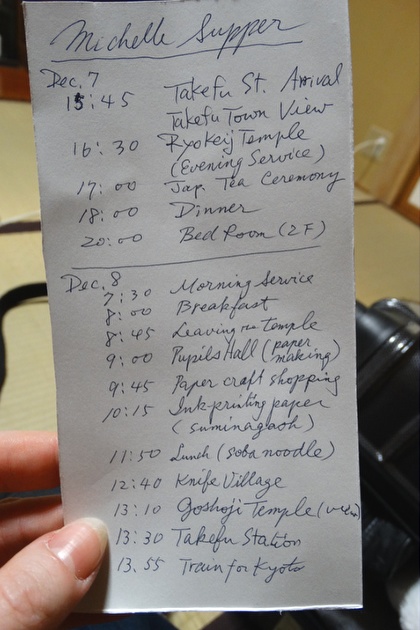 Michelle Supper
Dec. 7
15:45 Takefu St. Arrival
Takefu Town View
16:30 Ryokeij Temple
(Evening Service)
17:00 Jap. Tea Ceremony
18:00 Dinner
20:00 Bed Room (2F)
Dec. 8
7:30 Morning Service
8:00 Breakfast
8:45 Leaving Temple
9:00 Pupils Hall (paper
making)
9:45 Paper craft shopping
10:15 Ink-printing paper
(suminagash)
11:50 Lunch (soba noodle)
12:40 Knife Village
13:10 Goshoji Temple
13:30 Takefu Station
13.55 Train for Kyoto